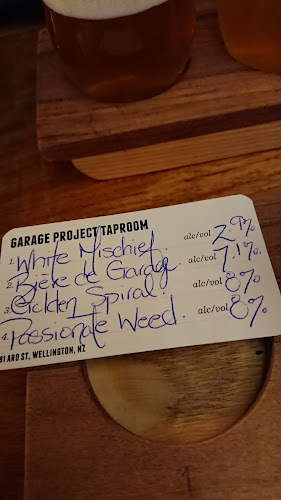 GARAGE PROJECT TAPROOM
1. White Mischief. alc/vol 2.9%
2. Bière de Garage. alc/vol 7.1%.
3. Golden Spiral. alc/vol 8%
4. Passionate Weed. alc/vol 8%
91 ARO ST, WELLINGTON, NZ